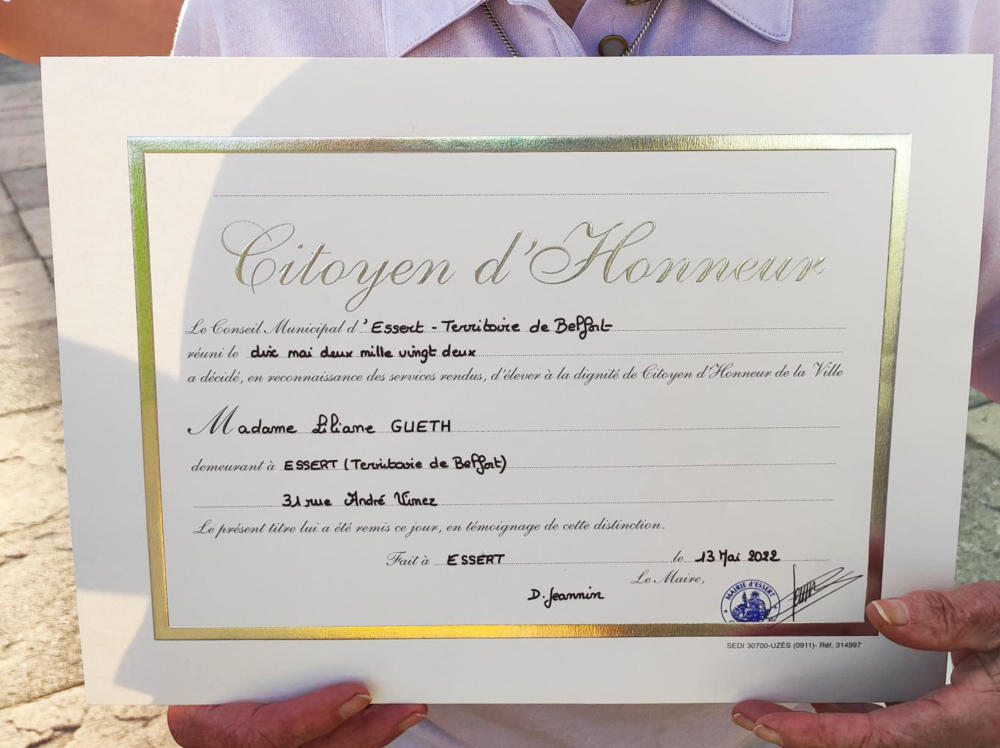 Citoyen d'Honneur
Le Conseil Municipal d'Essert - Territoire de Belfort
réuni le dix mai deux mille vingt deux
a décidé, en reconnaissance des services rendus, d'élever à la dignité de Citoyen d'Honneur de la Ville
Madame Liliane GUETH
demeurant à ESSERT (Territoire de Belfort)
31 rue André Vimez
Le présent titre lui a été remis ce jour, en témoignage de cette distinction.
Fait à ESSERT le 13 Mai 2022
Le Maire,
D. Jeannin
MAIRIE d'ESSERT
SEDI 30700-UZÈS (0911)- Réf. 314997